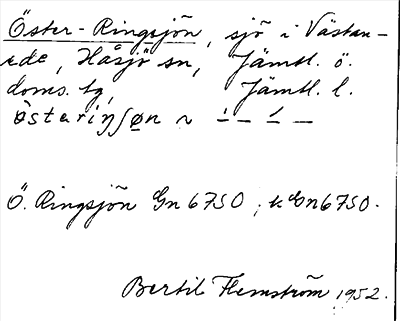 Öster-Ringsjön, sjö i Västan-
ede, Håsjö sn, Jämtl. ö.
doms. tg, Jämtl. l.
Ö. Ringsjön Gn 6750; k Gn 6750.
Bertil Flemström 1952.